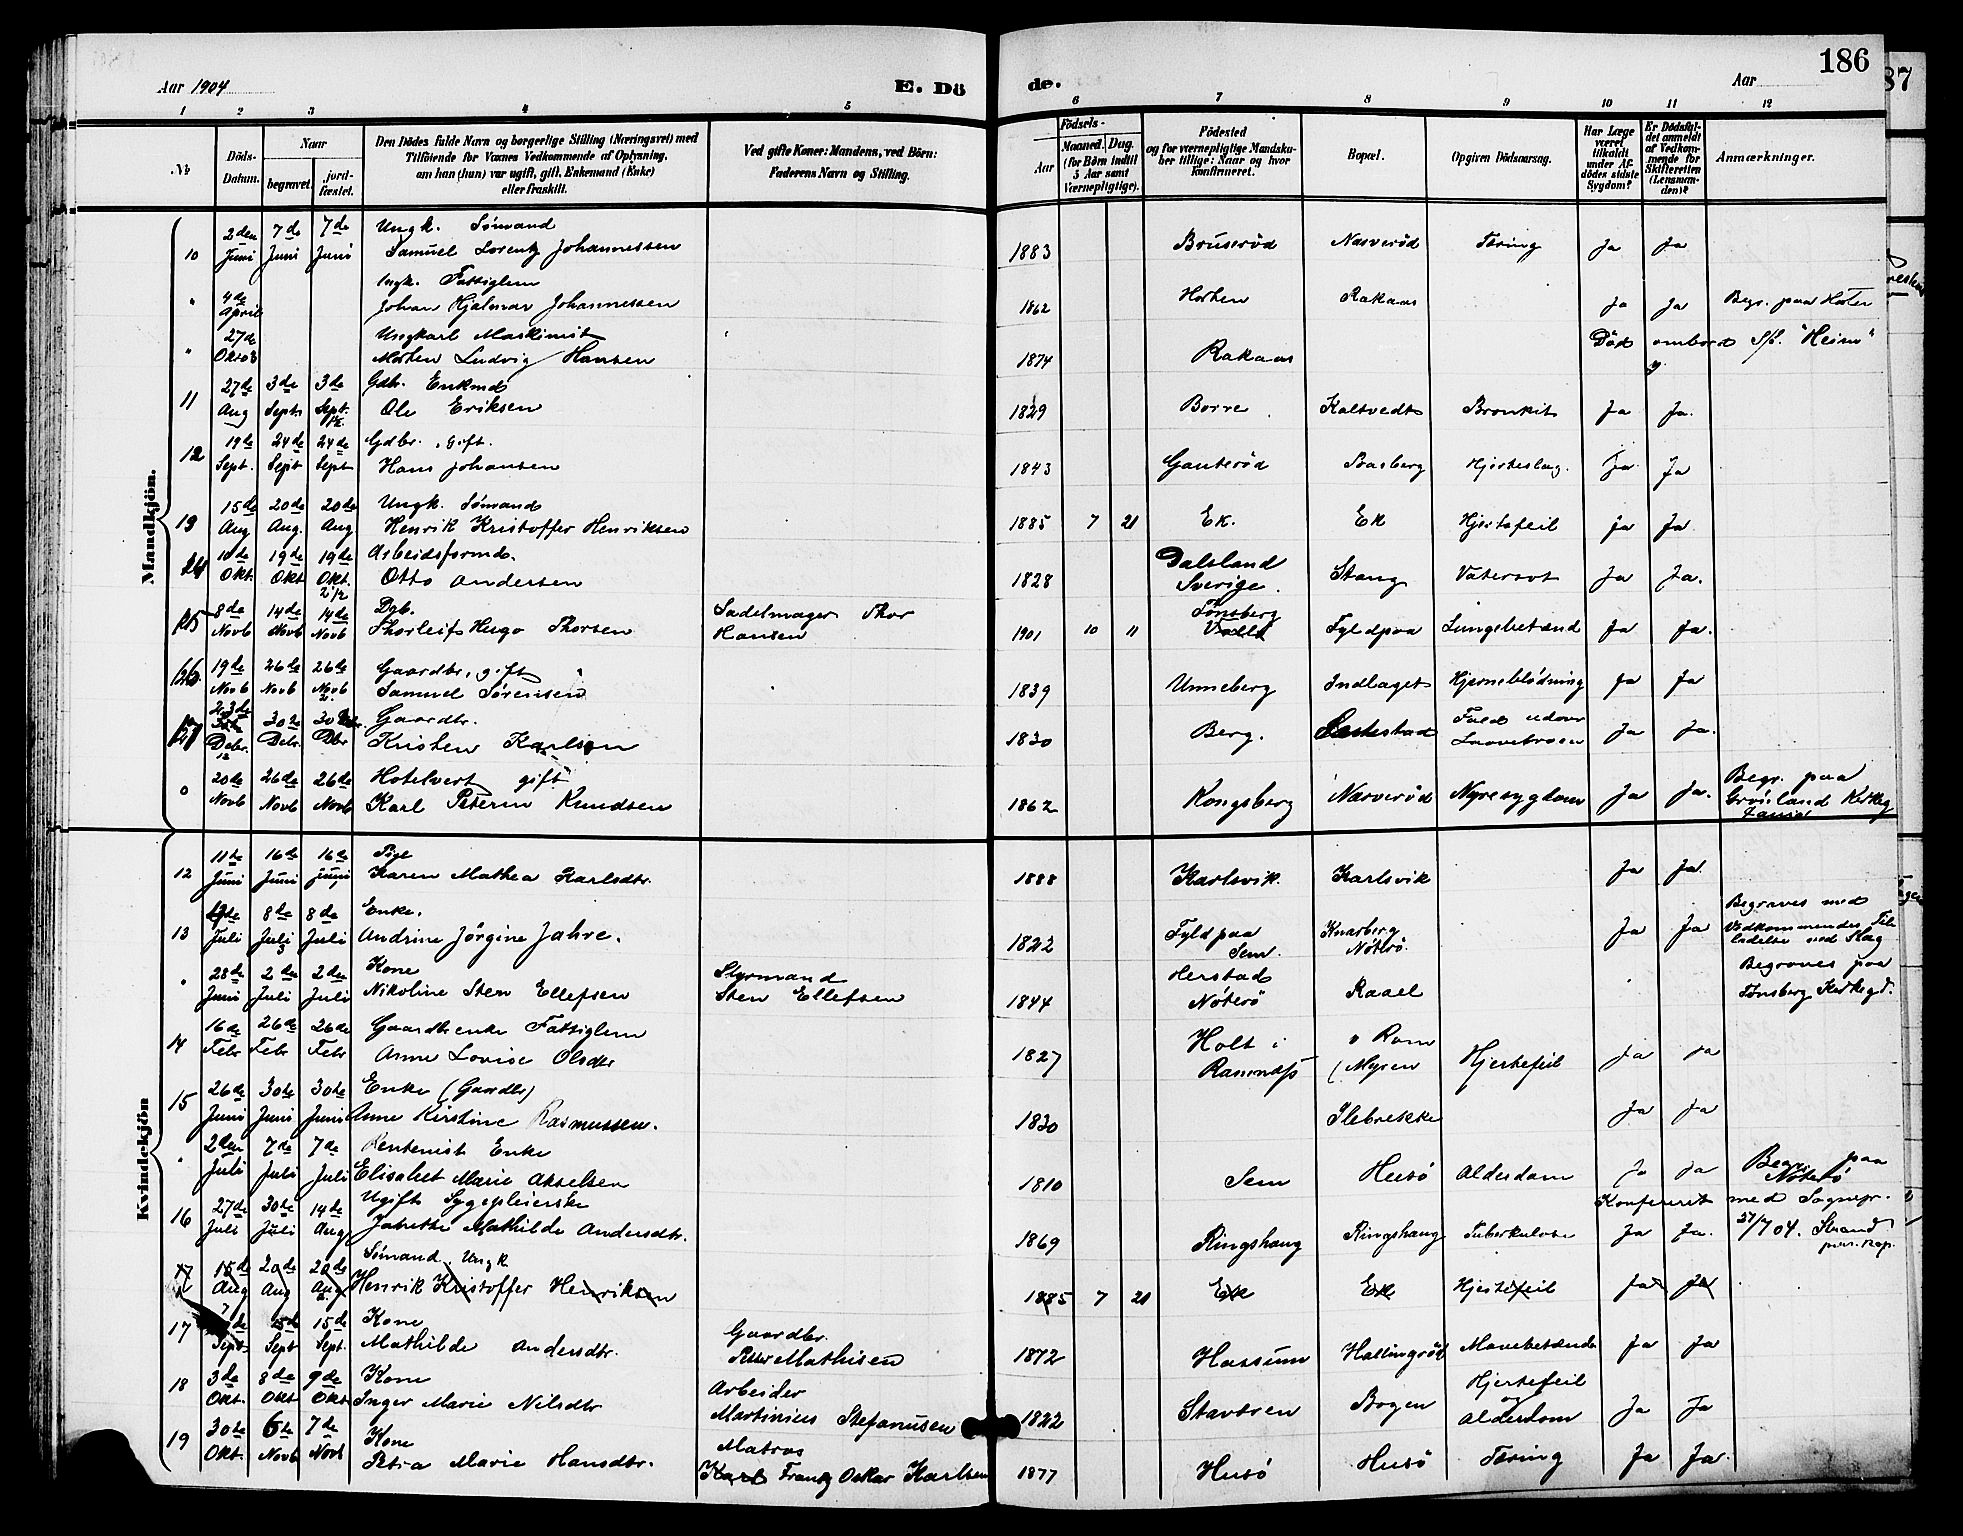 186
87
Aar 1904
E. Dö
de.
Aar
1 2 3 4 5 6 7 8 9 10 11 12
№
Döds-Datum.
Naar
begravet.
jord-fæstet.
Den Dödes fulde Navn og borgerlige Stilling (Næringsvei) med
Tilföiende for Voxnes Vedkommende af Oplysning,
om han (hun) var ugift, gift, Enkemand (Enke)
eller fraskilt.
Ved gifte Koner: Mandens, ved Börn:
Faderens Navn og Stilling.
Födsels-
Aar
Maaned. Dag.
(for Börn indtil
5 Aar samt
Værnepligtige).
Födested
og for værnepligtige Mandsku-
ber tillige: Naar og hvor
konfirmeret.
Bopæl.
Opgiven Dödsaarsag.
Har Læge
været
tilkaldt
under Af-
dödes sidste
Sygdom?
Er Dödsfal-
det anmeldt
af Vedkom-
mende for
Skifteretten
(Lensman-
den)?
Anmærkninger.
Mandkjön.
10 2den Juni 7de Juni 7de Juni Ungk. Sømand
Samuel Lorentz Johannessen 1883 Bruserød Narverød Tæring Ja Ja
" 4de April Ungk. Fattiglem
Johan Hjalmar Johannessen 1862 Horten Rakaas Ja Ja Begr. paa
" 27de Okt 03 Ungkarl Maskinist
Morten Ludvig Hansen 1874 Rakaas Død ombord S/S. "Heim"
11 27de Aug 3de Sept. 3de Sept. Gdbr. Enkmd
Ole Eriksen 1829 Borre Kaltvedt Bronkit Ja Ja.
12 19de Sept. 24de Sept 24de Sept Gdbr. gift.
Hans Johansen 1843 Gauterød Basberg Hjerteslag. Ja Ja
13 15de Aug 20de Aug. 20de Aug Ungk. Sømand
Henrik Kristoffer Henriksen 1885 7 21 Ek. Ek Hjertefeil Ja Ja.
14 10de Okt. 19de Okt 19de Okt. Arbeidsformd.
Otto Andersen 1828 Dalsland
Sverige. Stang Vatersot Ja Ja.
15 8de Novb 14de Novb 14de Novb Dgb.
Thorleif Hugo Thorsen Sadelmager Thor
Hansen 1901 10 11 Tønsberg
Fyldpaa Lungebetænd Ja Ja.
16 19de Novb 26de Novb 26de Novb Gaardbr. gift
Samuel Sørensen 1839 Unneberg Indlaget Hjerneblödning Ja Ja
17 23de Debr. 30de Debr. 30 Dbr Gaardbr.
Kristen Karlsen 1830 Berg. Fald udover
Laavebroen Ja Ja.
o 20de Novb 26de Novb 26de Novb Hotelvert gift
Karl Peterin Knudsen 1862 Kongsberg Narverød Nyresygdom Ja Ja. Begr. paa
Grönland Kirkeg
Kvindekjön
12 11te Juni 16de Juni 16de Juni Pige
Karen Mathea Karlsdtr. 1888 Karlsvik. Karlsvik Ja Ja.
13 Juli 8de Juli 8de Juli Enke.
Andrine Jørgine Jahre. 1822 Fyldpaa
Sem. Knarberg
Nøterø. Ja Ja Begraves med
Vedkommendes Til-
ladelse ved Slag
" 28de Juni 2de Juli 2den Juli Kone
Nikoline Sten Ellefsen Styrmand
Sten Ellefsen 1844 Herstad
Nøterø Raael Begraves paa
Tønsberg Kirkegd.
14 16de Febr 26de Febr 26de Febr Gaardbrenke Fattiglem
Anne Lovise Olsdtr 1827 Holt i
Ramnæs o Rom
(Myren Hjertefeil Ja Ja
15 26de Juni 30te Juni 30te Juni Enke (Gaardbr)
Anne Kirstine Rasmussen. 1830 Ilebrekke Ja Ja
" 2den Juli 7de Juli 7de Juli Rentenist Enke
Elisabet Marie Akselsen 1810 Sem Husö Alderdom Ja Ja Begr. paa
Nöterö
16 27de Juli 30te Juli 14de Aug Ugift Sygepleierske
Jakette Mathilde Andersdtr. 1869 Ringshaug Ringshaug Tuberkulose Ja Ja. Konfereret med Sognepr.
27/7 04. Strand
17 15de Aug 20de Aug 20de Aug Sømand. Ungk
Henrik Kristoffer Henriksen 1885 7 21 Ek Ek Hjertefeil Ja Ja
17 Sept 15de Sept 15de Sept. Kone
Mathilde Andersdtr. Gaardbr.
Peter Mathisen 1872 Hassum Hallingrød Mavebetænd Ja Ja
18 3de Okt. 8de Okt 9de Okt. Kone
Inger Marie Nilsdtr Arbeider
Martinius Stefanusen 1822 Stavern Bogen Hjertefeil
og
Alderdom Ja Ja
19 30te Okt. 6te Novb 7de Novb Kone
Petra Marie Hansdtr. Matros
Karl Frantz Oskar Karlsen 1877 Husö Husö Tæring Ja Ja.